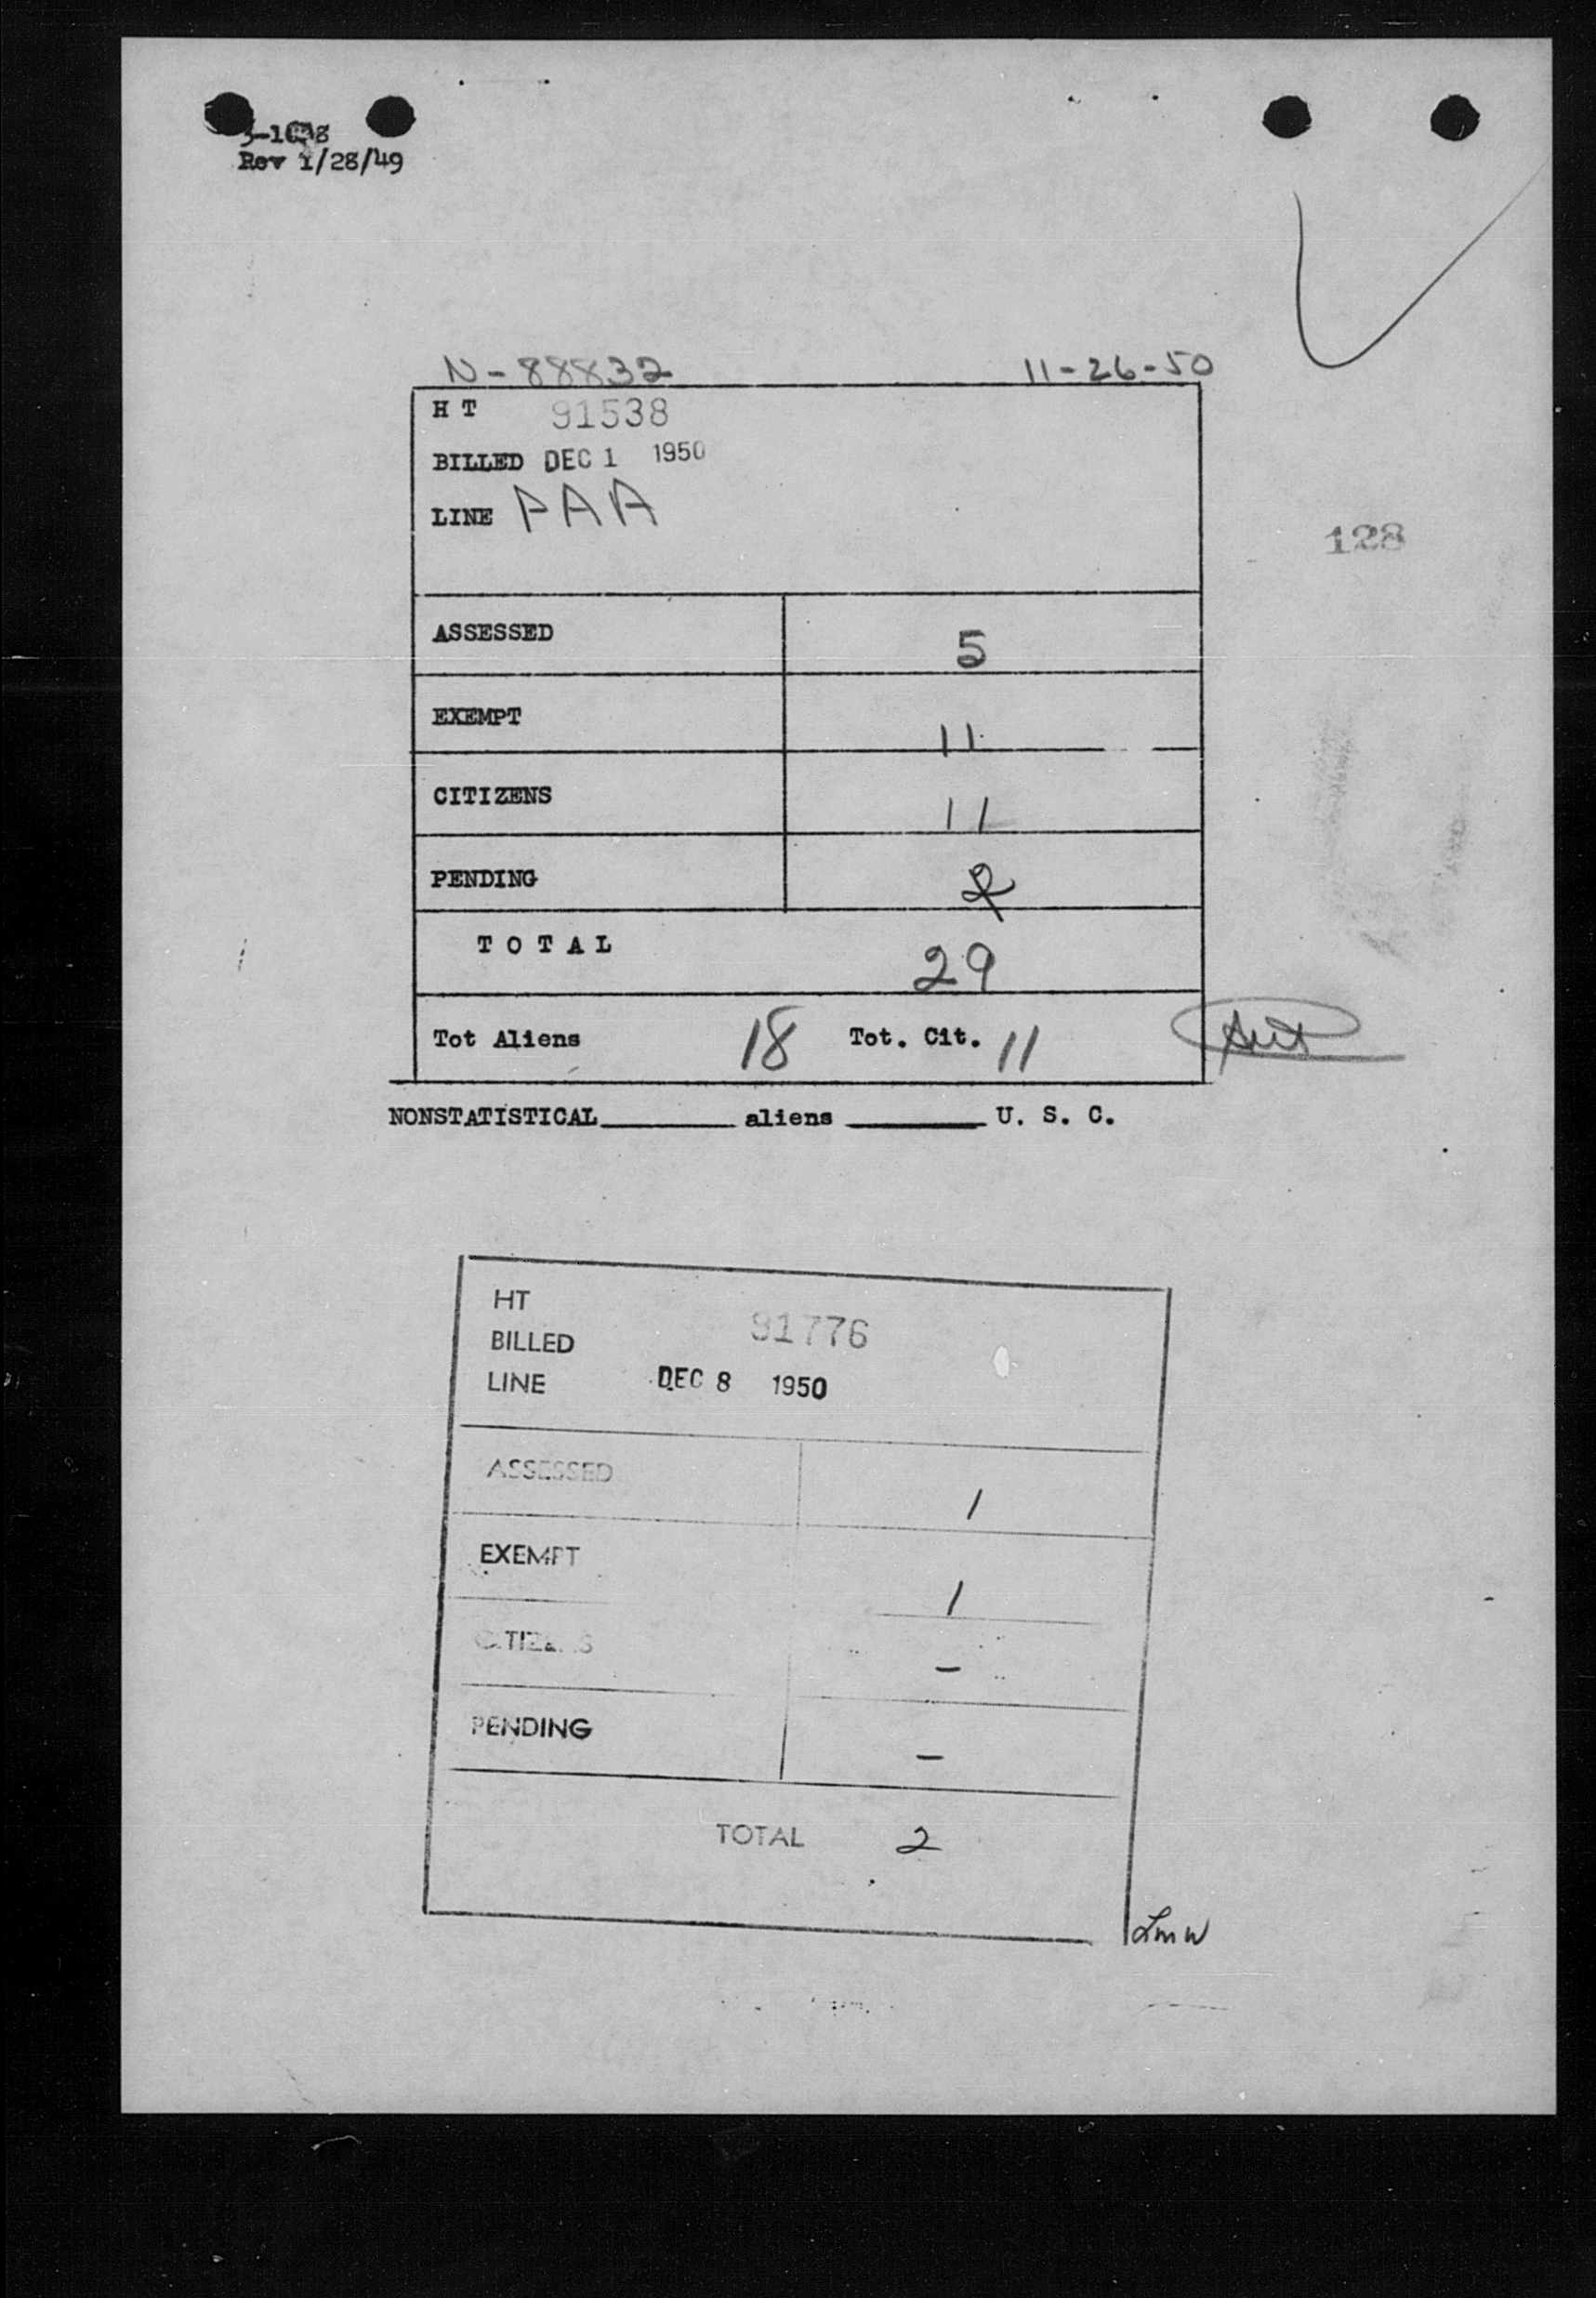 Rev 1/28/49
N-88832 11-26-50
H T 91538
BILLED DEC 1 1950
LINE PAA
128
ASSESSED 5
EXEMPT 11
CITIZENS 11
PENDING 2
TOTAL 29
Tot Aliens 18 Tot. Cit. 11
NONSTATISTICAL aliens U. S. C.
HT
BILLED 91776
LINE DEC 8 1950
ASSESSED 1
EXEMPT 1
CITIZENS -
PENDING -
TOTAL 2
LMW